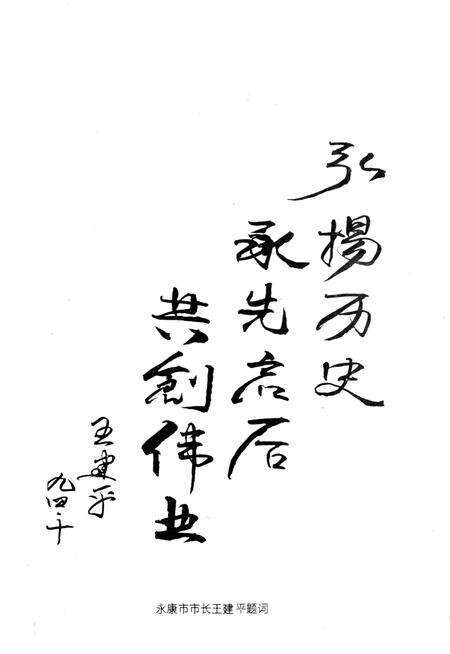 弘揚历史
承先启后
共創伟业
王建平
九四·十
永康市市长王建平题词